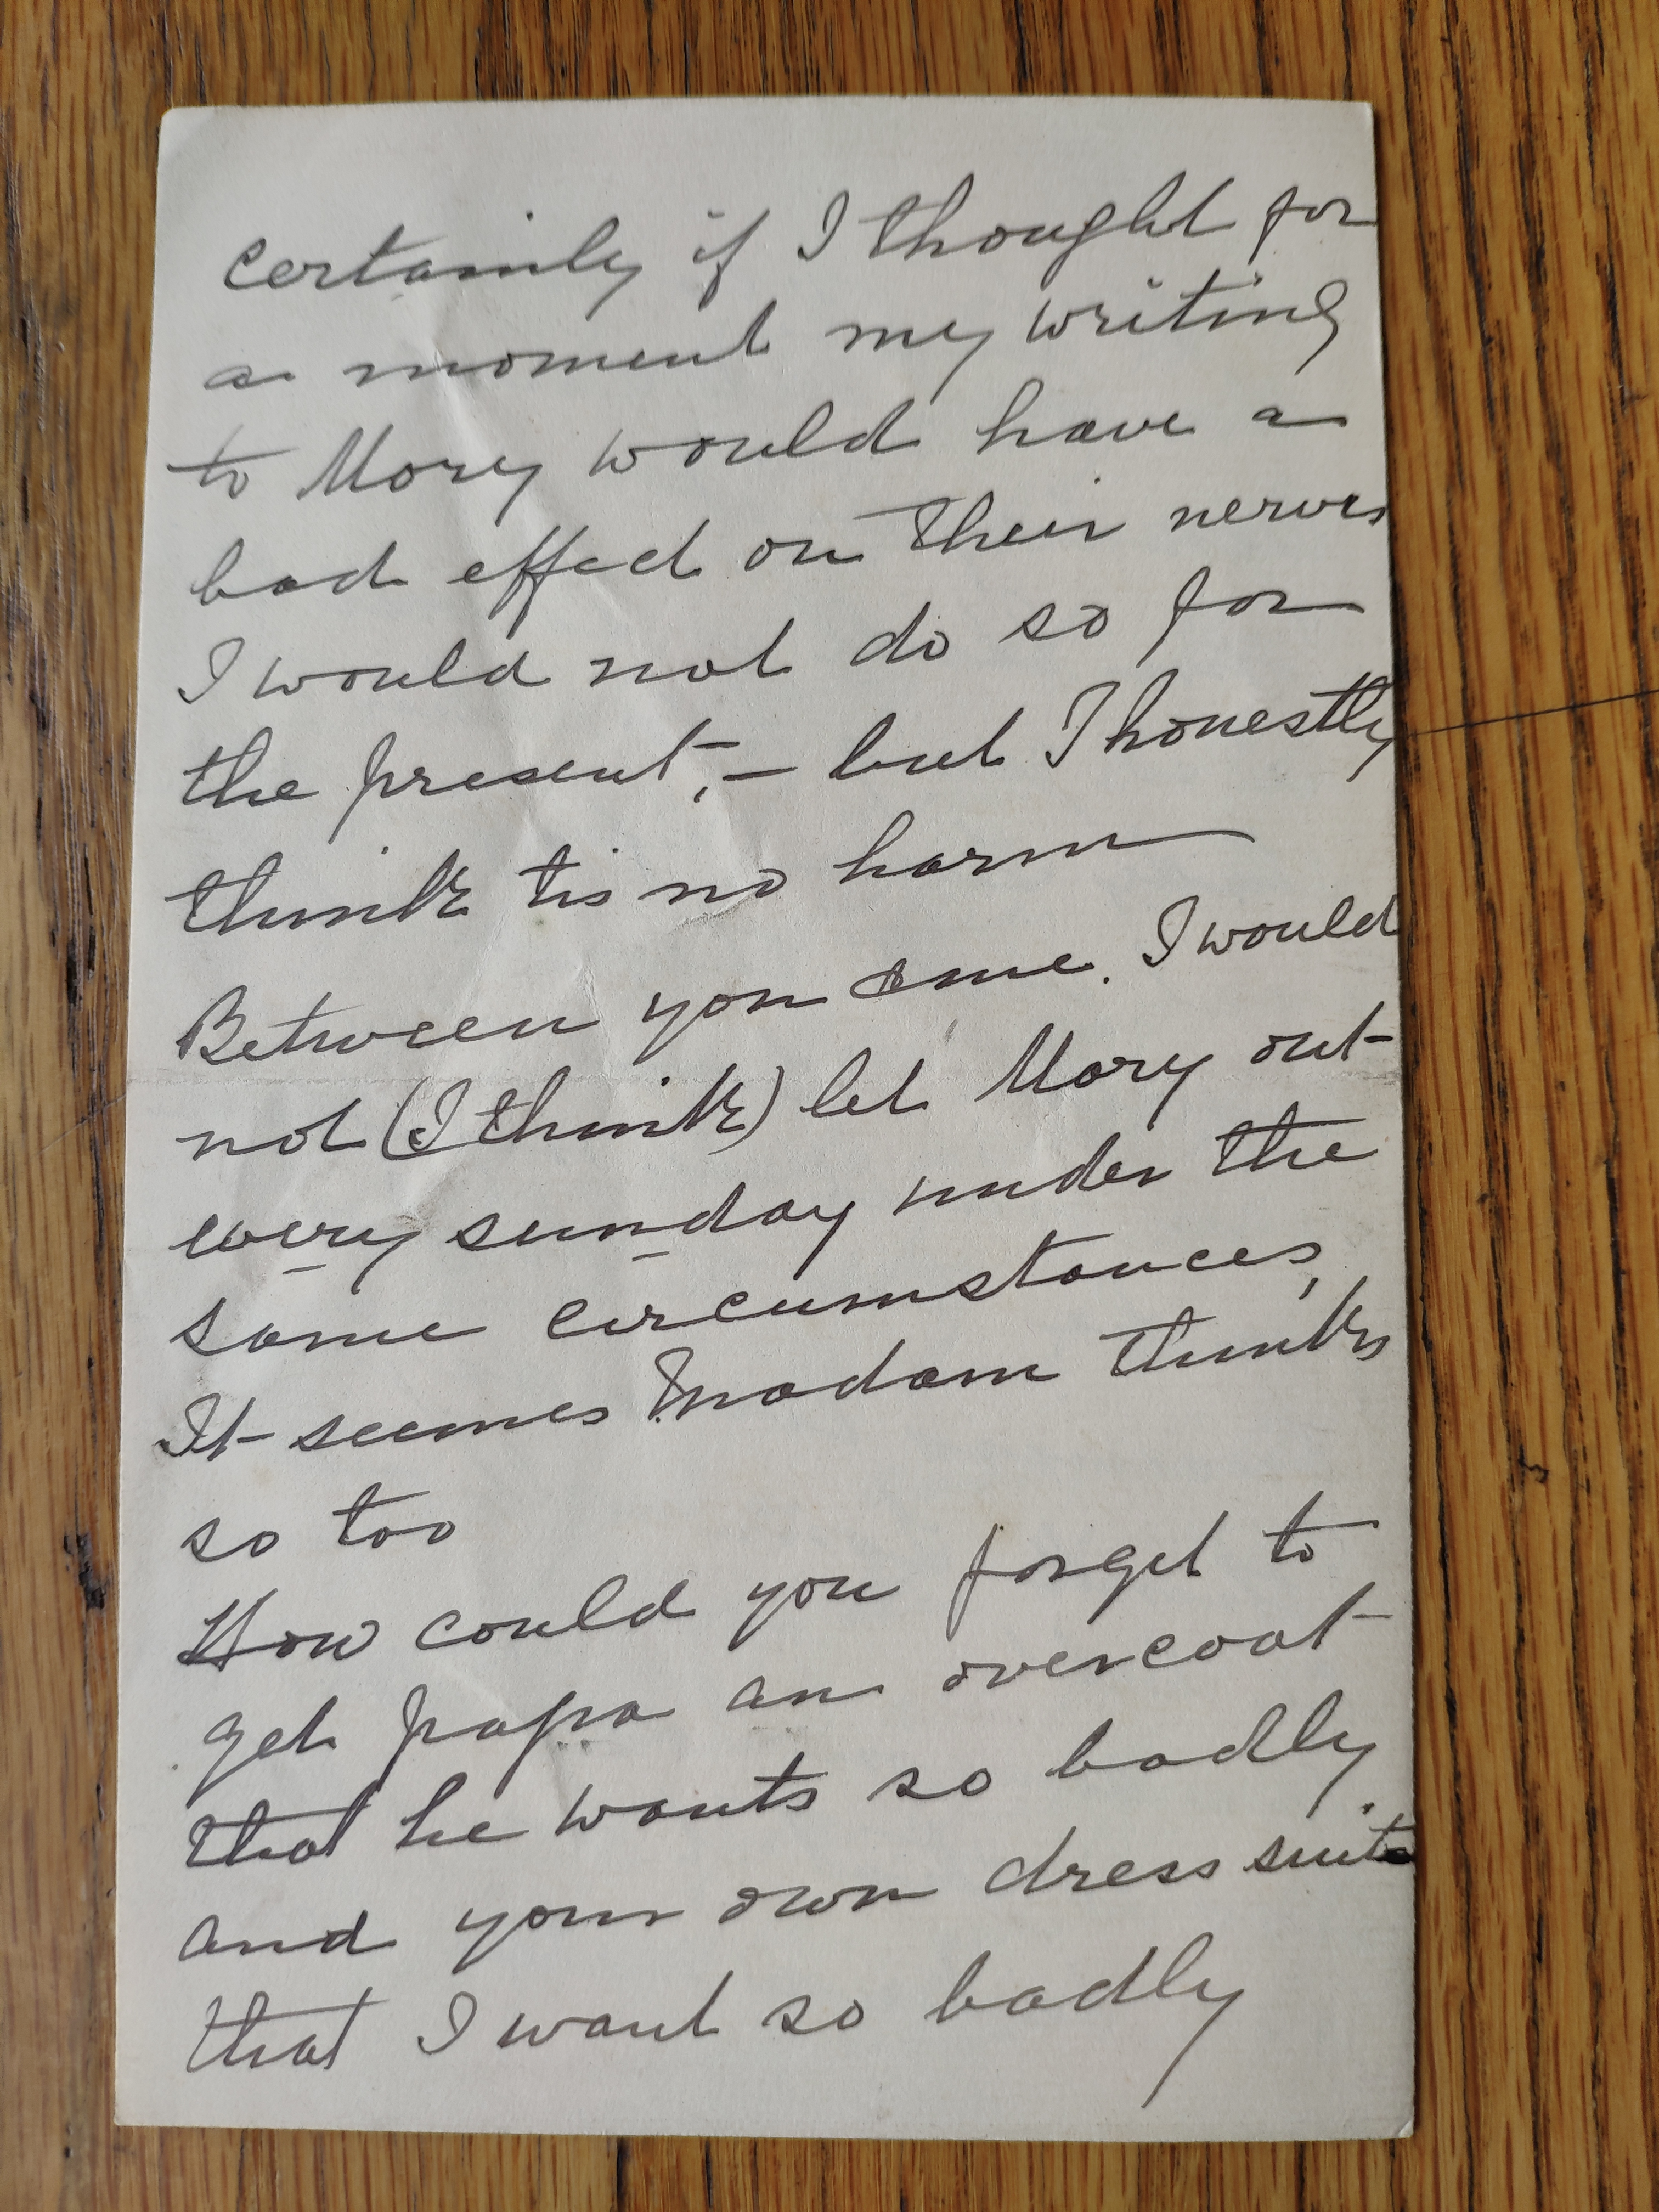 certainly if I thought for
a moment my writing
to Mary would have a
bad effect on their nerves
I would not do so for
the present, — but I honestly
think tis no harm
Between you & me. I would
not (I think) let Mary out
every sunday under the
same circumstances,
It seems Madam thinks
so too
How could you forget to
get papa an overcoat
that he wants so badly
and your own dress suit
that I want so badly